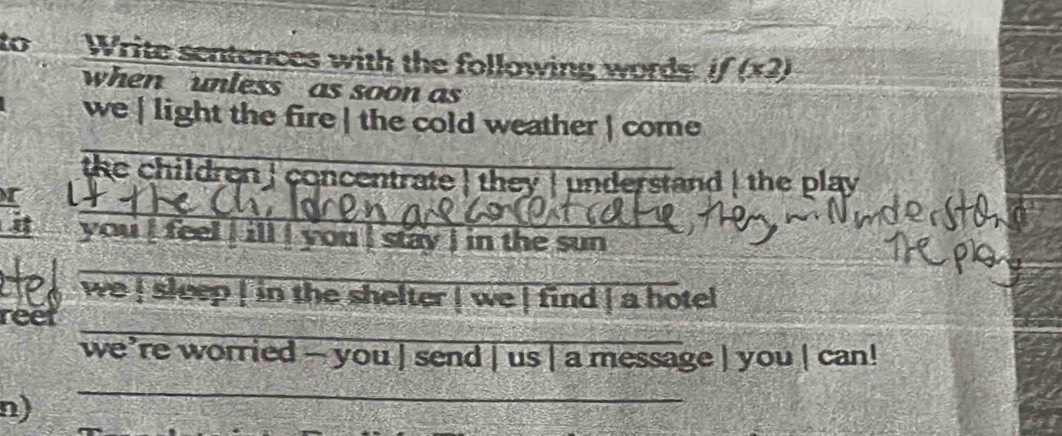 to Write sentences with the following words: if (x2)
when unless as soon as
we | light the fire | the cold weather | come
the children | concentrate | they | understand | the play
If the children are concentrate, they will understand
the play
it you | feel | ill | you | stay | in the sun
we | sleep | in the shelter | we | find | a hotel
reet
we're worried – you | send | us | a message | you | can!
n)